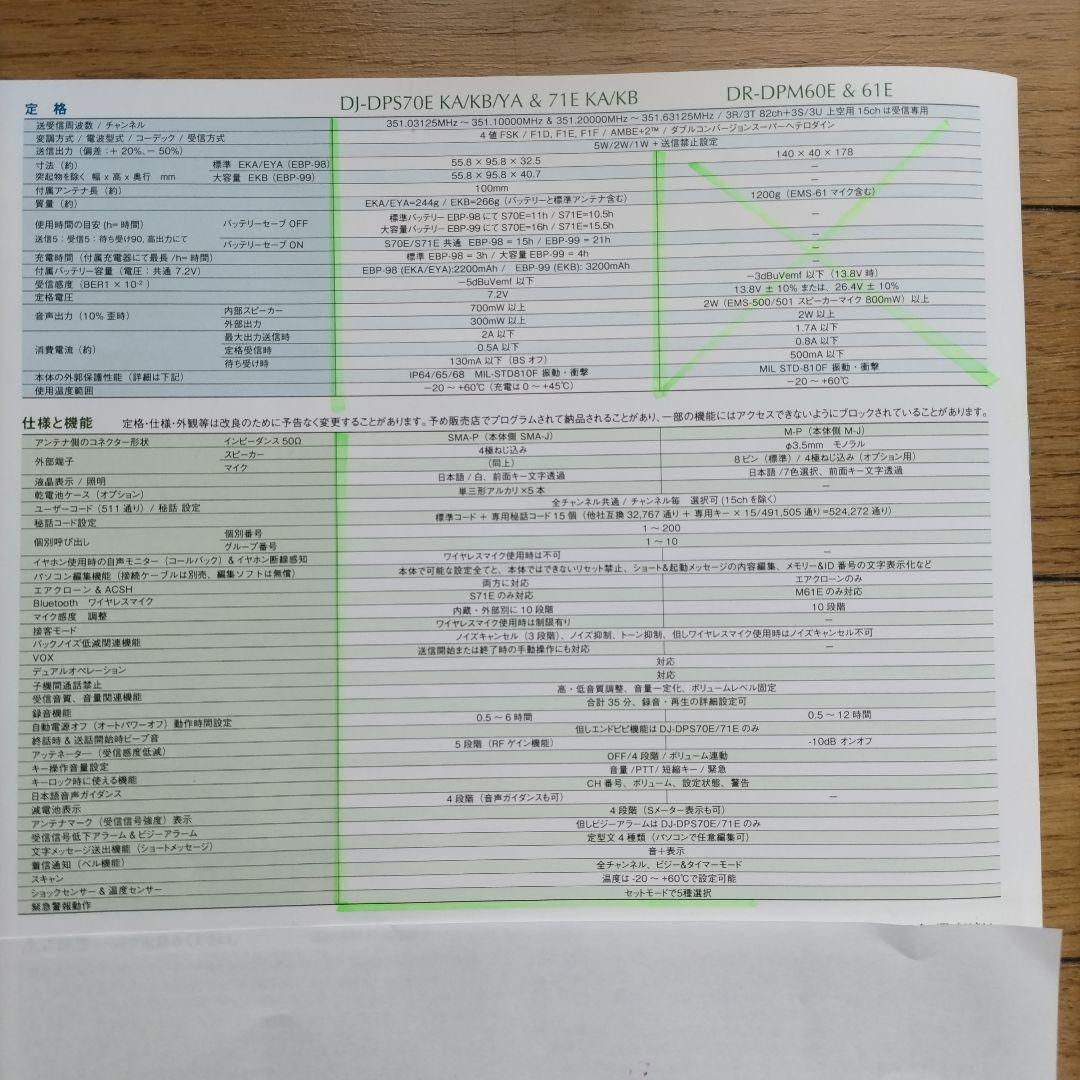 定 格 DJ-DPS70E KA/KB/YA & 71E KA/KB DR-DPM60E & 61E
送受信周波数 / チャンネル 351.03125MHz ～ 351.10000MHz & 351.20000MHz ～ 351.63125MHz / 3R/3T 82ch+3S/3U 上空用 15ch は受信専用
変調方式 / 電波型式 / コーデック / 受信方式 4 値 FSK / F1D, F1E, F1F / AMBE+2™ / ダブルコンバージョンスーパーヘテロダイン
送信出力（偏差：+ 20%、– 50%） 5W/2W/1W +送信禁止設定
寸法（約） 標準 EKA/EYA（EBP-98） 55.8 × 95.8 × 32.5 140 × 40 × 178
突起物を除く 幅 x 高 x 奥行 mm 大容量 EKB（EBP-99） 55.8 × 95.8 × 40.7 –
付属アンテナ長（約） 100mm –
質量（約） EKA/EYA=244g / EKB=266g（バッテリーと標準アンテナ含む） 1200g（EMS-61 マイク含む）
使用時間の目安（h= 時間） バッテリーセーブ OFF 標準バッテリー EBP-98 にて S70E=11h / S71E=10.5h –
大容量バッテリー EBP-99 にて S70E=16h / S71E=15.5h
送信5：受信5：待ち受け90, 高出力にて バッテリーセーブ ON S70E/S71E 共通 EBP-98 = 15h / EBP-99 = 21h –
充電時間（付属充電器にて最長 /h= 時間） 標準 EBP-98 = 3h / 大容量 EBP-99 = 4h –
付属バッテリー容量（電圧：共通 7.2V） EBP-98 (EKA/EYA):2200mAh / EBP-99 (EKB): 3200mAh –
受信感度（BER1 × 10⁻²） –5dBuVemf 以下 –3dBuVemf 以下（13.8V 時）
定格電圧 7.2V 13.8V ± 10% または、26.4V ± 10%
音声出力（10% 歪時） 内部スピーカー 700mW 以上 2W（EMS-500/501 スピーカーマイク 800mW）以上
外部出力 300mW 以上 2W 以上
消費電流（約） 最大出力送信時 2A 以下 1.7A 以下
定格受信時 0.5A 以下 0.8A 以下
待ち受け時 130mA 以下（BS オフ） 500mA 以下
本体の外郭保護性能（詳細は下記） IP64/65/68 MIL-STD810F 振動・衝撃 MIL STD-810F 振動・衝撃
使用温度範囲 –20 ～ +60℃（充電は 0 ～ +45℃） –20 ～ +60℃
仕様と機能 定格・仕様・外観等は改良のために予告なく変更することがあります。予め販売店でプログラムされて納品されることがあり、一部の機能にはアクセスできないようにブロックされていることがあります。
アンテナ側のコネクター形状 インピーダンス 50Ω SMA-P（本体側 SMA-J） M-P（本体側 M-J）
外部端子 スピーカー 4極ねじ込み φ3.5mm モノラル
マイク （同上） 8 ピン（標準）/ 4極ねじ込み（オプション用）
液晶表示 / 照明 日本語 / 白、前面キー文字透過 日本語 /7色選択、前面キー文字透過
乾電池ケース（オプション） 単三形アルカリ×5 本 –
ユーザーコード（511 通り）/ 秘話 設定 全チャンネル共通 / チャンネル毎 選択可 (15ch を除く)
秘話コード設定 標準コード + 専用秘話コード 15 個（他社互換 32,767 通り + 専用キー × 15/491,505 通り =524,272 通り）
個別呼び出し 個別番号 1 ～ 200
グループ番号 1 ～ 10
イヤホン使用時の自声モニター（コールバック）& イヤホン断線感知 ワイヤレスマイク使用時は不可 –
パソコン編集機能（接続ケーブルは別売、編集ソフトは無償） 本体で可能な設定全てと、本体ではできないリセット禁止、ショート&起動メッセージの内容編集、メモリー&ID 番号の文字表示化など
エアクローン & ACSH 両方に対応 エアクローンのみ
Bluetooth ワイヤレスマイク S71E のみ対応 M61E のみ対応
マイク感度 調整 内蔵・外部別に 10 段階 10 段階
接客モード ワイヤレスマイク使用時は制限有り –
バックノイズ低減関連機能 ノイズキャンセル（3 段階）、ノイズ抑制、トーン抑制、但しワイヤレスマイク使用時はノイズキャンセル不可
VOX 送信開始または終了時の手動操作にも対応 –
デュアルオペレーション 対応
子機間通話禁止 対応
受信音質、音量関連機能 高・低音質調整、音量一定化、ボリュームレベル固定
録音機能 合計 35 分、録音・再生の詳細設定可
自動電源オフ（オートパワーオフ）動作時間設定 0.5 ～ 6 時間 0.5 ～ 12 時間
終話時 & 送話開始時ビープ音 但しエンドピピ機能は DJ-DPS70E/71E のみ
アッテネーター（受信感度低減） 5 段階（RF ゲイン機能） -10dB オンオフ
キー操作音量設定 OFF/4 段階 / ボリューム連動
キーロック時に使える機能 音量 /PTT/ 短縮キー / 緊急
日本語音声ガイダンス CH 番号、ボリューム、設定状態、警告
減電池表示 4 段階（音声ガイダンスも可） –
アンテナマーク（受信信号強度）表示 4 段階（Sメーター表示も可）
受信信号低下アラーム & ビジーアラーム 但しビジーアラームは DJ-DPS70E/71E のみ
文字メッセージ送出機能（ショートメッセージ） 定型文 4 種類（パソコンで任意編集可）
着信通知（ベル機能） 音＋表示
スキャン 全チャンネル、ビジー&タイマーモード
ショックセンサー & 温度センサー 温度は -20 ～ +60℃で設定可能
緊急警報動作 セットモードで5種選択